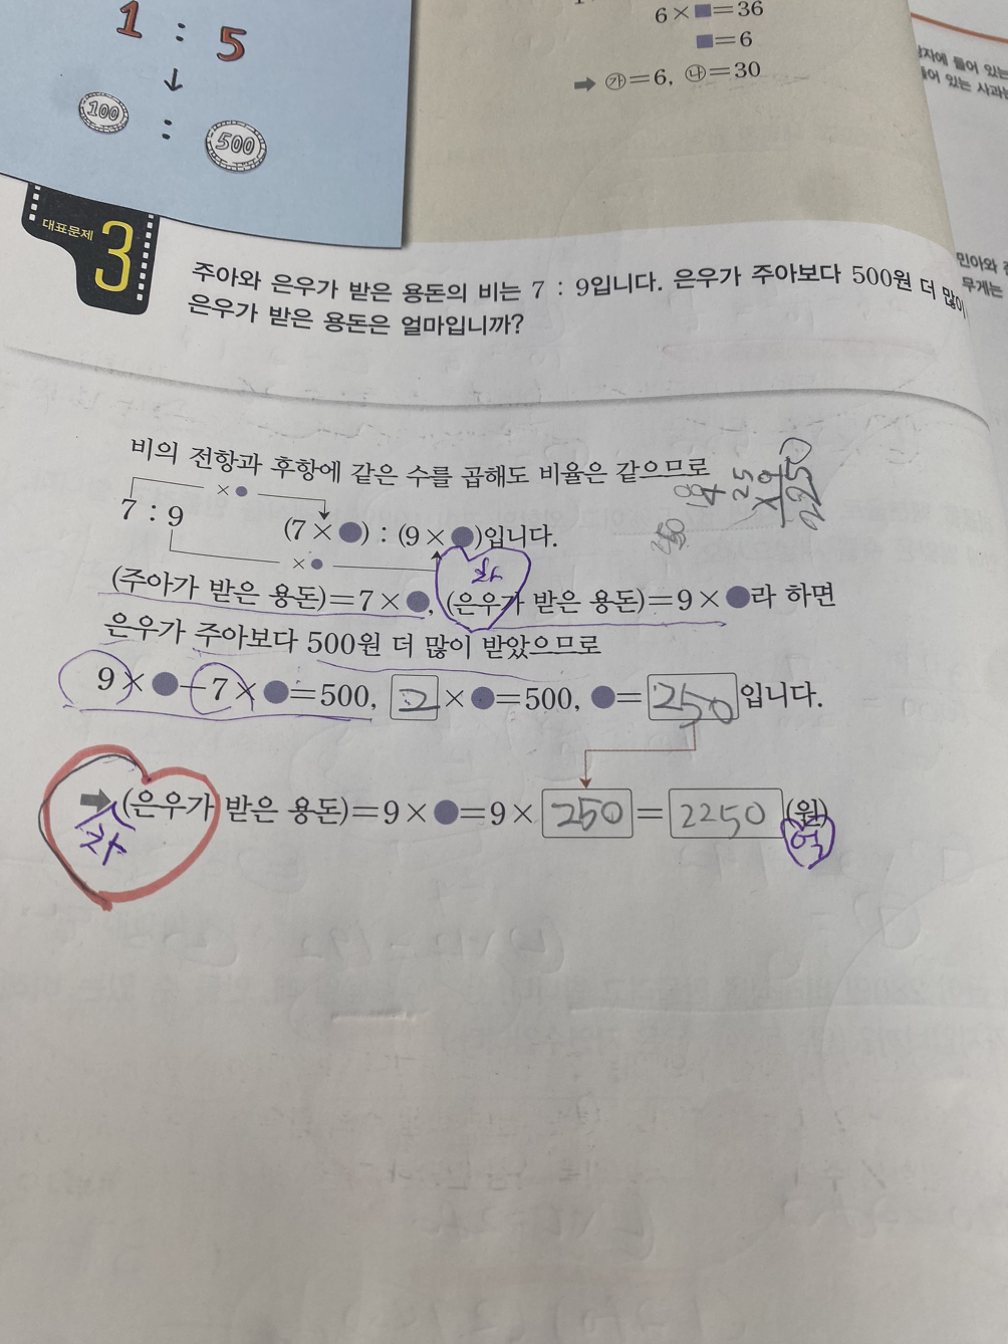 1 : 5
↓
100 : 500
6×■=36
■=6
➡ ㉮=6, ㉯=30
들어 있는
있는 사과는
대표문제 3
주아와 은우가 받은 용돈의 비는 7 : 9입니다. 은우가 주아보다 500원 더 많이
은우가 받은 용돈은 얼마입니까?
민아와
무게는
비의 전항과 후항에 같은 수를 곱해도 비율은 같으므로
×●
7 : 9
(7×●) : (9×●)입니다.
×●
25
×9
2250
차
(주아가 받은 용돈)=7×●, (은우가 받은 용돈)=9×●라 하면
은우가 주아보다 500원 더 많이 받았으므로
9×●-7×●=500, 2×●=500, ●=250입니다.
➡ (은우가 받은 용돈)=9×●=9×250=2250(원)
차
억